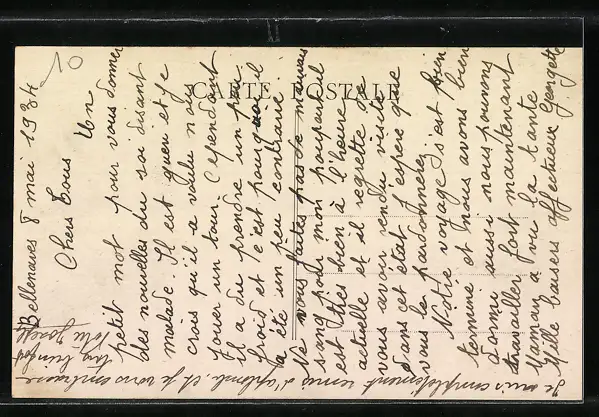 CARTE POSTALE
Bellenaves 8 mai 1934
Chers Tous
Un
petit mot pour vous donner
des nouvelles du soi disant
malade. Il est gueri et je
crois qu'il a voulu nous
jouer un tour. Cependant
il a du prendre un peu
froid et c'est pourquoi il
a été un peu contrarié.
Ne vous faites pas de mauvais
sang pour mon poupart il
est très bien à l'heure
actuelle et il regrette de
vous avoir rendu visite
dans cet état j'espère que
vous le pardonnerez.
Notre voyage s'est bien
terminé et nous avons bien
dormi aussi nous pouvons
travailler fort maintenant
Maman a vu la tante
Mille baisers affectueux Georgette
Je suis complètement remis d'aplomb et je vous embrasse